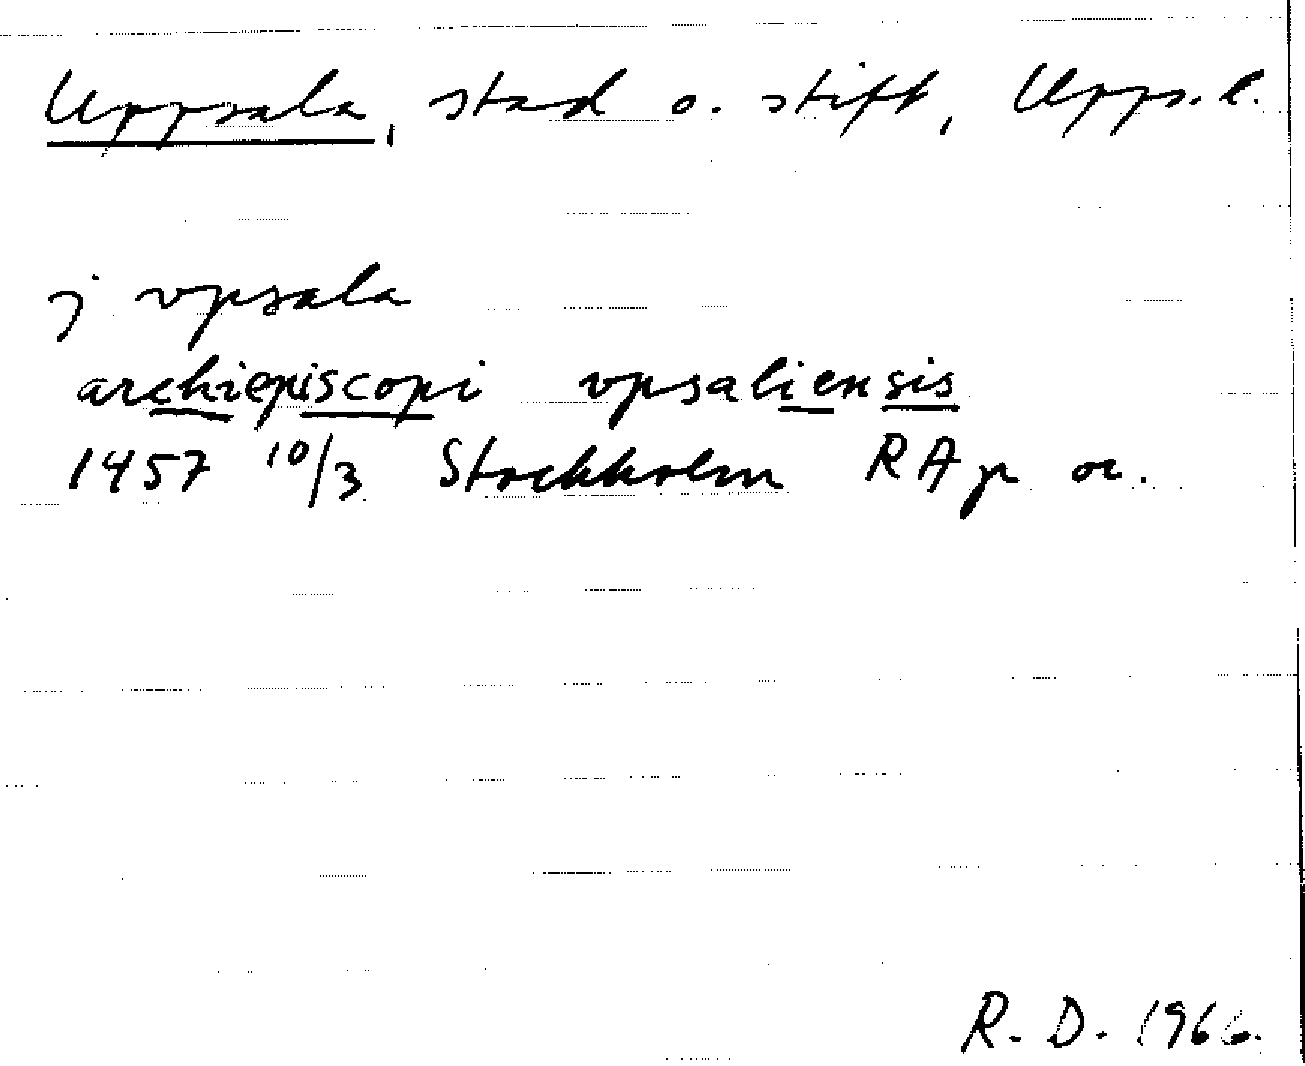 Uppsala, stad o. stift, Upps. l.
j vpsala
archiepiscopi vpsaliensis
1457 10/3 Stockholm RAp or.
R. D. 1966.